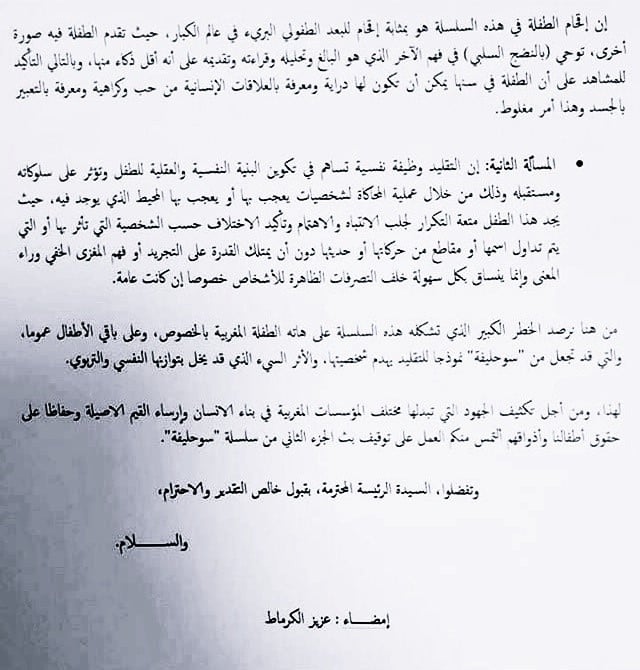 إن إقحام الطفلة في هذه السلسلة هو بمثابة إقحام للبعد الطفولي البريء في عالم الكبار، حيث تقدم الطفلة فيه صورة
أخرى، توحي (بالنضج السلبي) في فهم الآخر الذي هو البالغ وتحليله وقراءته وتقديمه على أنه أقل ذكاء منها، وبالتالي التأكيد
للمشاهد على أن الطفلة في سنها يمكن أن تكون لها دراية ومعرفة بالعلاقات الإنسانية من حب وكراهية ومعرفة بالتعبير
بالجسد وهذا أمر مغلوط.
• المسألة الثانية: إن التقليد وظيفة نفسية تساهم في تكوين البنية النفسية والعقلية للطفل وتؤثر على سلوكاته
ومستقبله وذلك من خلال عملية المحاكاة لشخصيات يعجب بها أو يعجب بها المحيط الذي يوجد فيه، حيث
يجد هذا الطفل متعة التكرار لجلب الانتباه والاهتمام وتأكيد الاختلاف حسب الشخصية التي تأثر بها أو التي
يتم تداول اسمها أو مقاطع من حركاتها أو حديثها دون أن يمتلك القدرة على التجريد أو فهم المغزى الخفي وراء
المعنى وإنما ينساق بكل سهولة خلف التصرفات الظاهرة للأشخاص خصوصا إن كانت عامة.
من هنا نرصد الخطر الكبير الذي تشكله هذه السلسلة على هاته الطفلة المغربية بالخصوص، وعلى باقي الأطفال عموما،
والتي قد تجعل من "سوحليفة" نموذجا للتقليد يهدم شخصيتها، والأثر السيء الذي قد يخل بتوازنها النفسي والتربوي.
لهذا، ومن أجل تكثيف الجهود التي تبذلها مختلف المؤسسات المغربية في بناء الانسان وإرساء القيم الاصيلة وحفاظا على
حقوق أطفالنا وأذواقهم ألتمس منكم العمل على توقيف بث الجزء الثاني من سلسلة "سوحليفة".
وتفضلوا، السيدة الرئيسة المحترمة، بقبول خالص التقدير والاحترام،
والســـــلام.
إمضــاء : عزيز الكرماط